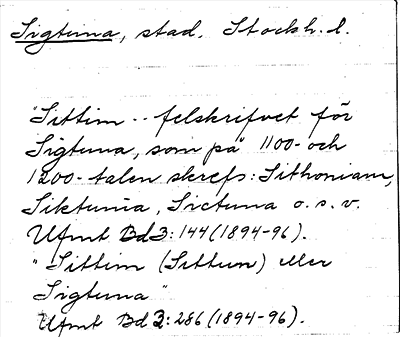 Sigtuna, stad. Stockh. l.
"Sittim -- felskrifvet för
Sigtuna, som på 1100- och
1200-talen skrefs: Sithoniam,
Siktunia, Sictuna o. s. v.
Ufmt Bd 3: 144 (1894-96).
"Sittim (Sittun) eller
Sigtuna"
Ufmt Bd 3: 286 (1894-96).